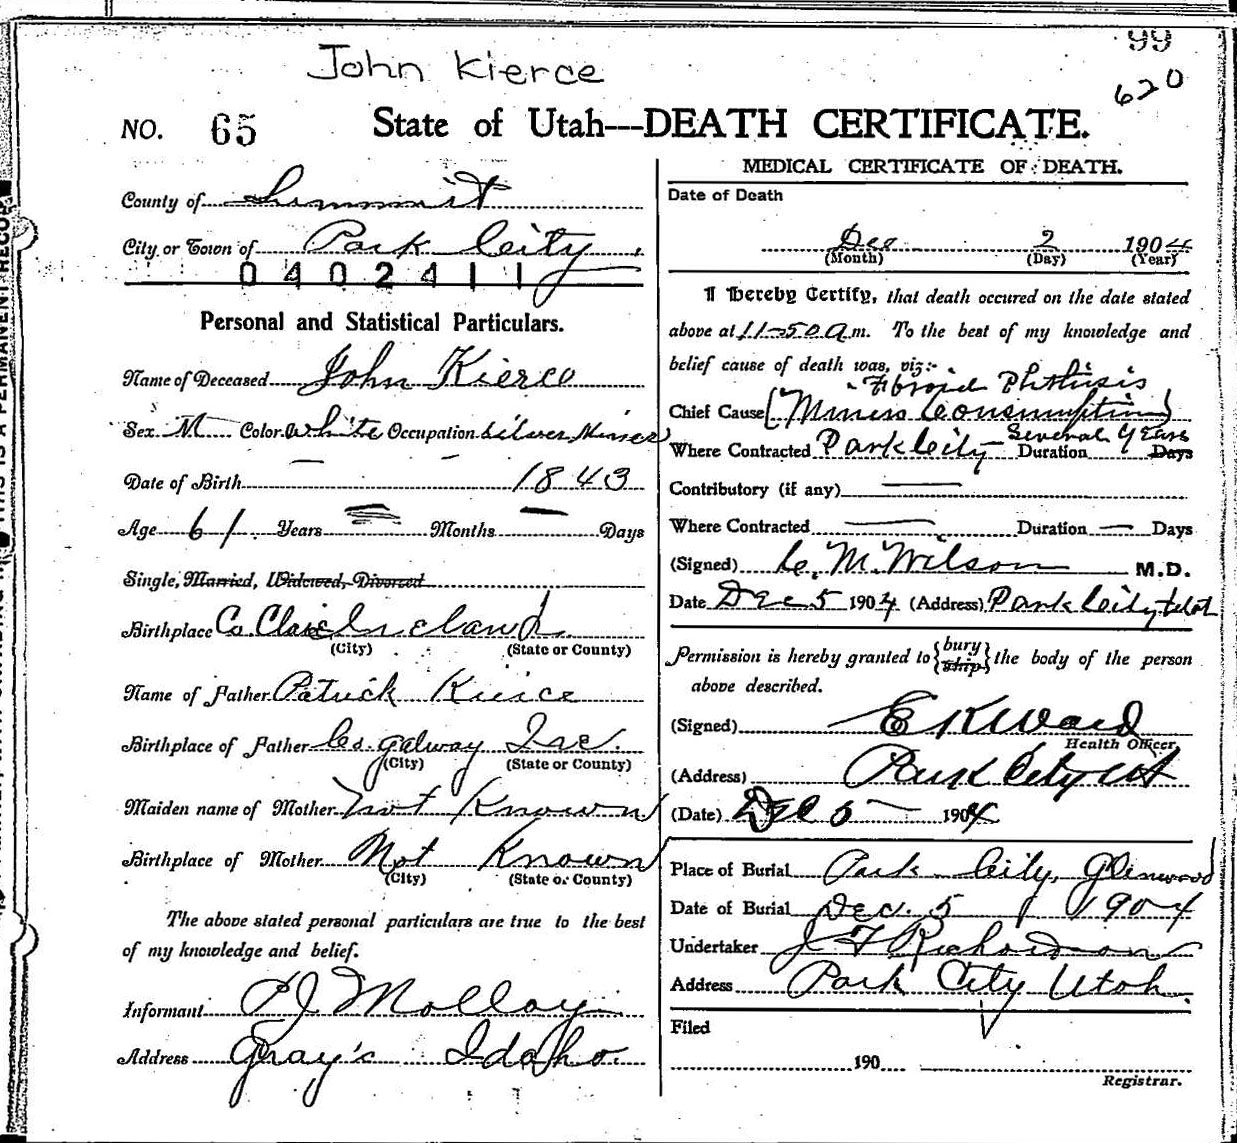 99
John Kierce
620
NO. 65 State of Utah---DEATH CERTIFICATE.
County of Summit
City or Town of Park City
04024 11
Personal and Statistical Particulars.
Name of Deceased John Kierce
Sex M Color White Occupation Silver Miner
Date of Birth — - 1843
Age 61 Years — Months — Days
Single, Married, Widowed, Divorced
Birthplace Co. Clare Ireland
(City) (State or County)
Name of Father Patrick Kierce
Birthplace of Father Co. Galway Ire.
(City) (State or County)
Maiden name of Mother Not Known
Birthplace of Mother Not Known
(City) (State or County)
The above stated personal particulars are true to the best
of my knowledge and belief.
Informant P J Molloy
Address Gray's Idaho.
MEDICAL CERTIFICATE OF DEATH.
Date of Death
Dec 2 1904
(Month) (Day) (Year)
I Hereby Certify, that death occured on the date stated
above at 11-50 a m. To the best of my knowledge and
belief cause of death was, viz:-
Fibroid Phthisis
Chief Cause (Miners Consumption)
Where Contracted Park City — Duration Several Years Days
Contributory (if any) —
Where Contracted — Duration — Days
(Signed) C. M. Wilson M.D.
Date Dec 5 1904 (Address) Park City Utah
Permission is hereby granted to {bury ship} the body of the person
above described.
(Signed) E K Ward
Health Officer
(Address) Park City Ut
(Date) Dec 5 — 1904
Place of Burial Park City, Glenwood
Date of Burial Dec. 5 1904
Undertaker J F Richardson
Address Park City Utah.
Filed
190
Registrar.